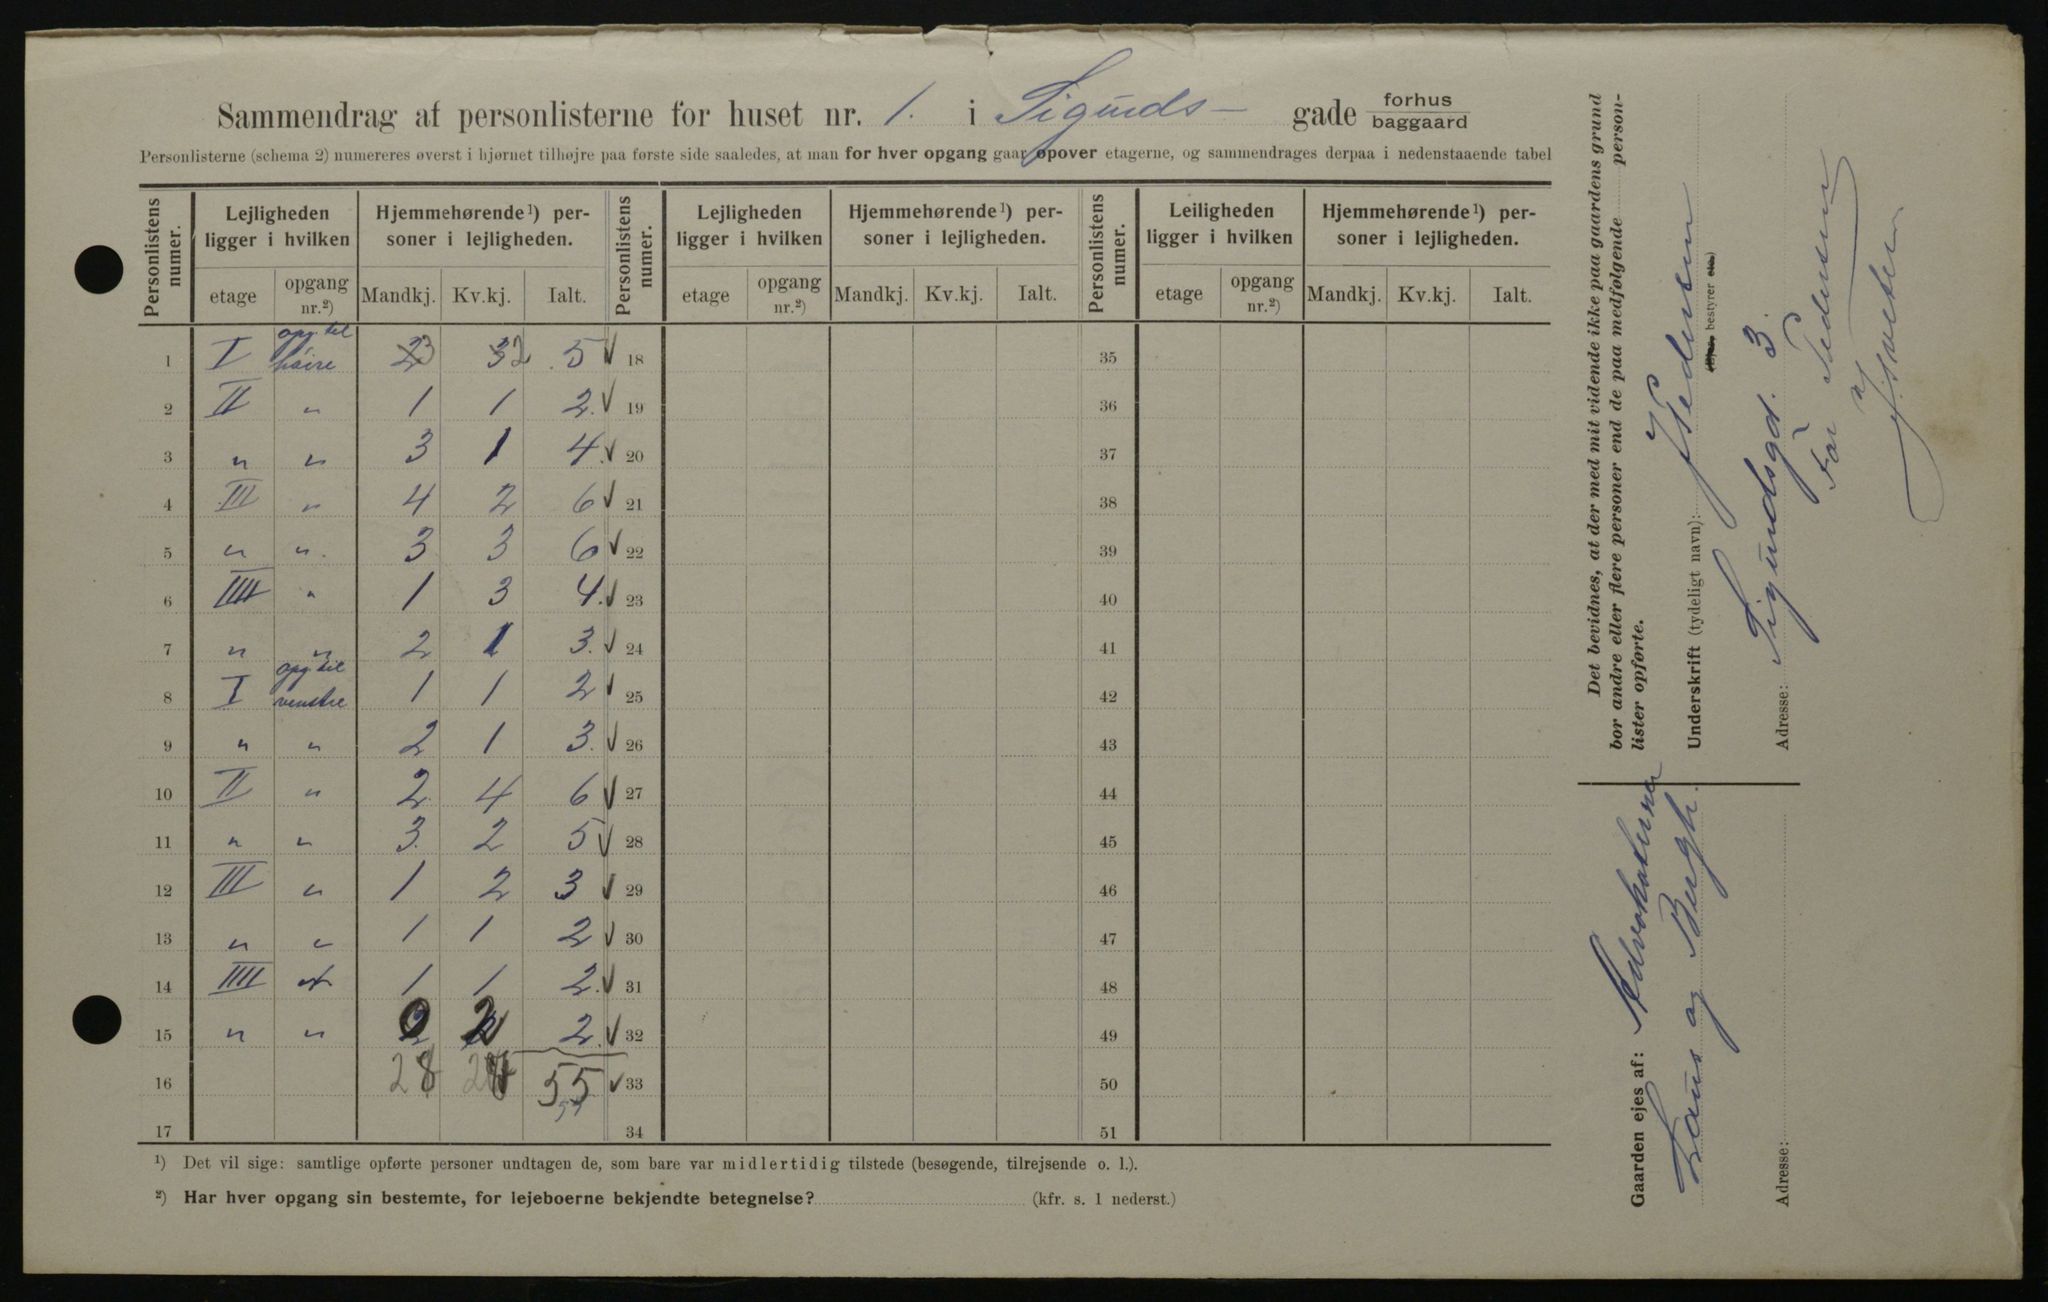 Sammendrag af personlisterne for huset nr. 1. i Sigurds- gade forhus baggaard
Personlisterne (schema 2) numereres øverst i hjørnet tilhøjre paa første side saaledes, at man for hver opgang gaar opover etagerne, og sammendrages derpaa i nedenstaaende tabel
Personlistens numer. Lejligheden ligger i hvilken Hjemmehørende¹) personer i lejligheden. Personlistens numer. Lejligheden ligger i hvilken Hjemmehørende¹) personer i lejligheden. Personlistens numer. Leiligheden ligger i hvilken Hjemmehørende¹) personer i lejligheden.
etage opgang nr.²) Mandkj. Kv.kj. Ialt. etage opgang nr.²) Mandkj. Kv.kj. Ialt. etage opgang nr.²) Mandkj. Kv.kj. Ialt.
1 I opg. til høire 3 2 5 ✓ 18 35
2 II " 1 1 2. ✓ 19 36
3 " " 3 1 4. ✓ 20 37
4 III " 4 2 6 ✓ 21 38
5 " " 3 3 6 ✓ 22 39
6 IIII " 1 3 4. ✓ 23 40
7 " " 2 1 3. ✓ 24 41
8 I opg. til venstre 1 1 2 ✓ 25 42
9 " " 2 1 3. ✓ 26 43
10 II " 2 4 6 ✓ 27 44
11 " " 3 2 5 ✓ 28 45
12 III " 1 2 3 ✓ 29 46
13 " " 1 1 2 ✓ 30 47
14 IIII " 1 1 2. ✓ 31 48
15 " " 0 2 2. ✓ 32 49
16 28 55 ✓ 33 50
17 34 51
¹) Det vil sige: samtlige opførte personer undtagen de, som bare var midlertidig tilstede (besøgende, tilrejsende o. l.).
²) Har hver opgang sin bestemte, for lejeboerne bekjendte betegnelse? (kfr. s. 1 nederst.)
Det bevidnes, at der med mit vidende ikke paa gaardens grund
bor andre eller flere personer end de paa medfølgende personlister opførte.
Underskrift (tydeligt navn): Pedersen
(Ejer, bestyrer etc.)
Adresse: Sigurdsgd. 3.
For Pedersen
Gaarden ejes af: Advokaterne
og Bergh.
Adresse: